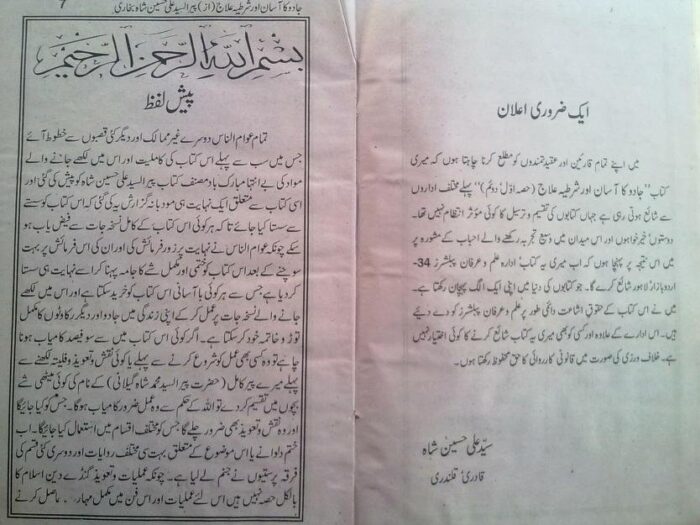 ایک ضروری اعلان
میں اپنے تمام قارئین اور عقیدتمندوں کو مطلع کرنا چاہتا ہوں کہ میری
کتاب "جادو کا آسان اور شرطیہ علاج (حصہ اوّل دوئم)" پہلے مختلف اداروں
سے شائع ہوتی رہی ہے جہاں کتابوں کی تقسیم و ترسیل کا کوئی مؤثر انتظام نہیں تھا۔
دوستوں' خیر خواہوں اور اس میدان میں وسیع تجربہ رکھنے والے احباب کے مشورہ پر
میں اس نتیجہ پر پہنچا ہوں کہ اب میری یہ کتاب ادارہ علم و عرفان پبلشرز 34-
اردو بازار' لاہور شائع کرے گا۔ جو کتابوں کی دنیا میں اپنی ایک الگ پہچان رکھتا ہے۔
میں نے اس کتاب کے حقوقِ اشاعت دائمی طور پر علم و عرفان پبلشرز کو دے دیئے
ہیں۔ اس ادارے کے علاوہ اور کسی کو بھی میری یہ کتاب شائع کرنے کا کوئی اختیار نہیں
ہے۔ خلاف ورزی کی صورت میں قانونی کارروائی کا حق محفوظ رکھتا ہوں۔
سیّد علی حسین شاہ
قادری' قلندری
جادو کا آسان اور شرطیہ علاج (از) پیر السید علی حسین شاہ بخاری
7
بسم الله الرحمن الرحيم
پیش لفظ
تمام عوام الناس دوسرے غیر ممالک اور دیگر کئی قصبوں سے خطوط آئے
جس میں سب سے پہلے اس کتاب کی کاملیت اور اس میں لکھے جانے والے
مواد کی بے انتہا مبارک باد مصنف کتاب پیر السید علی حسین شاہ کو پیش کی گئی اور
اسی کتاب سے متعلق ایک نہایت ہی مودبانہ گزارش یہ کی گئی کہ اس کتاب کو سستے
سے سستا کیا جائے تاکہ ہر کوئی اس کتاب کے کامل نسخہ جات سے فیض یاب ہو
سکے چونکہ عوام الناس نے نہایت پر زور فرمائش کی اور ان کی اس فرمائش پر بہت
سوچنے کے بعد اس کتاب کو حتمی اور مکمل شے کا جامہ پہنا کر اسے نہایت ہی سستا
کر دیا ہے جس سے ہر کوئی با آسانی اس کتاب کو خرید سکتا ہے اور اس میں لکھے
جانے والے نسخہ جات پر عمل کر کے اپنی زندگی میں جادو اور دیگر رکاوٹوں کا مکمل
توڑ و خاتمہ خود کر سکتا ہے۔ اگر کوئی اس کتاب میں سو فیصد کامیاب ہونا
چاہے تو وہ کسی بھی عمل کو شروع کرنے سے پہلے یا کوئی نقش و تعویذ و فلیتہ لکھنے سے
پہلے میرے پیر کامل (حضرت پیر السید محمد شاہ گیلانی) کے نام کی کوئی میٹھی شے
بچوں میں تقسیم کر دے تو اللہ کے حکم سے وہ عمل ضرور کامیاب ہو گا۔ جس کو کیا جائیگا
اور وہ نقش و تعویذ بھی ضرور چلے گا جس کو مختلف اقسام میں استعمال کیا جائیگا۔ اب
ختم دلوانے یا اس موضوع کے متعلق بہت ہی مختلف روایات اور دوسری کئی قسم کی
فرقہ پرستیوں نے جنم لے لیا ہے۔ چونکہ عملیات و تعویذ گنڈے دین اسلام کا
بالکل حصہ نہیں ہیں اس لئے عملیات اور اس فن میں مکمل مہارت حاصل کرنے